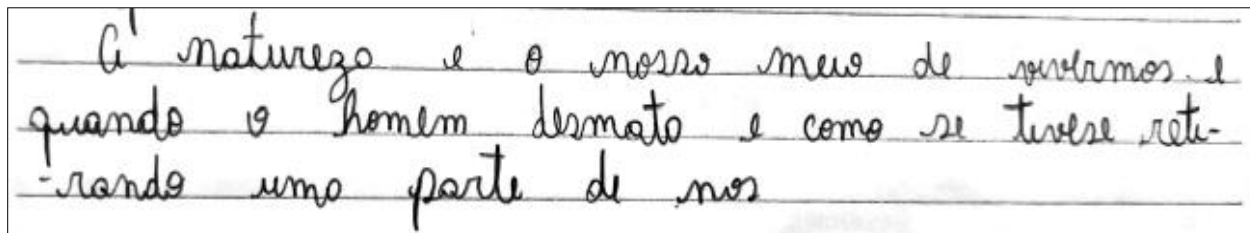 A natureza e o nosso meio de vivermos e
quando o homem desmata e como se tivese reti-
-rando uma parte de nos